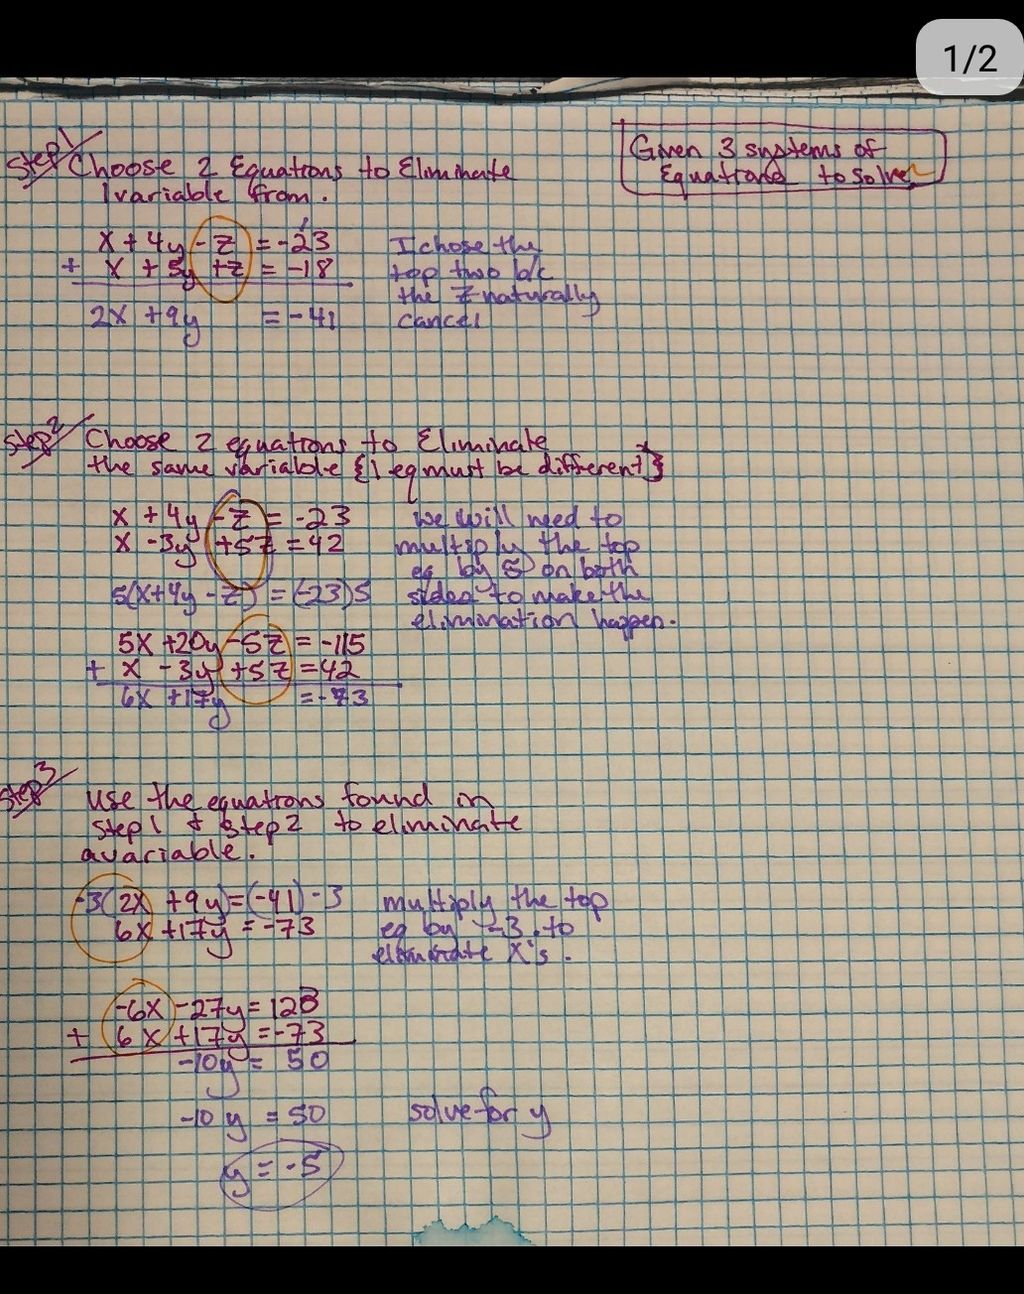 1/2
Given 3 systems of
Equations to solve
Step 1 Choose 2 Equations to Eliminate
1 variable from.
x + 4y - z = -23
+ x + 5y + z = -18
2x + 9y = -41
I chose the
top two b/c
the z naturally
cancel
Step 2 Choose 2 equations to Eliminate
the same variable {1 eq must be different}
x + 4y - z = -23
x - 3y + 5z = 42
5(x+4y - z) = (-23)5
we will need to
multiply the top
eq by 5 on both
sides to make the
elimination happen.
5x + 20y - 5z = -115
+ x - 3y + 5z = 42
6x + 17y = -73
Step 3 Use the equations found in
step 1 + step 2 to eliminate
a variable.
-3(2x + 9y) = (-41) -3
6x + 17y = -73
multiply the top
eq by -3 to
eliminate x's.
-6x - 27y = 123
+ 6x + 17y = -73
-10y = 50
-10y = 50
solve for y
y = -5